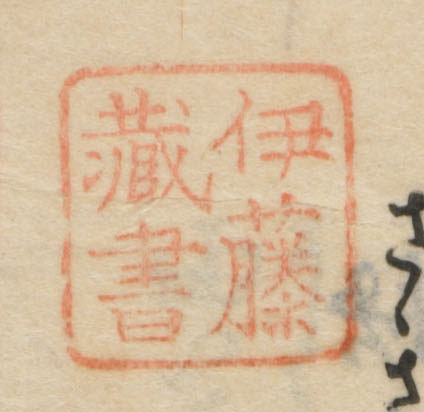 伊藤
藏書